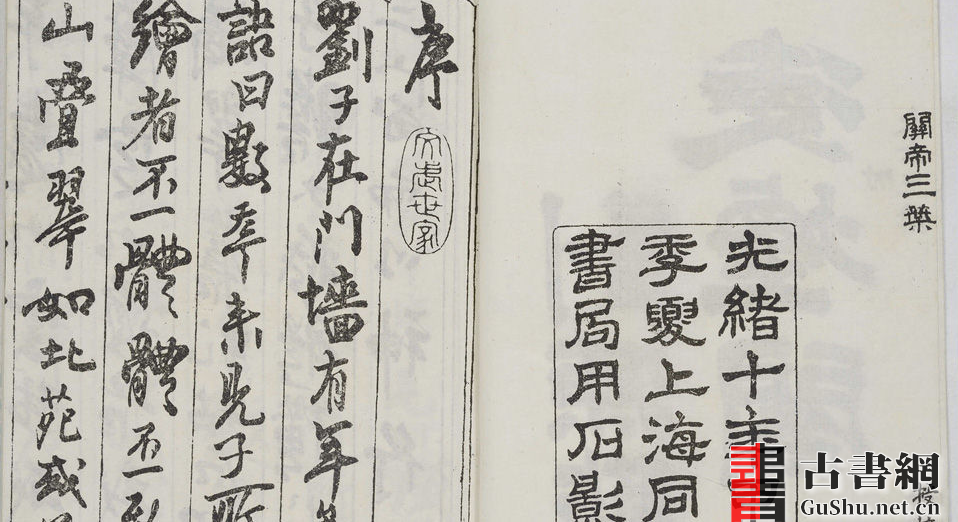 關帝三
光緒十年
季夏上海同
書局用石影
序
世家
劉子在門墻有年
曰數年未見子所
繪者不一體體不一
山疊翠如北苑或
古書網
GuShu.net.cn